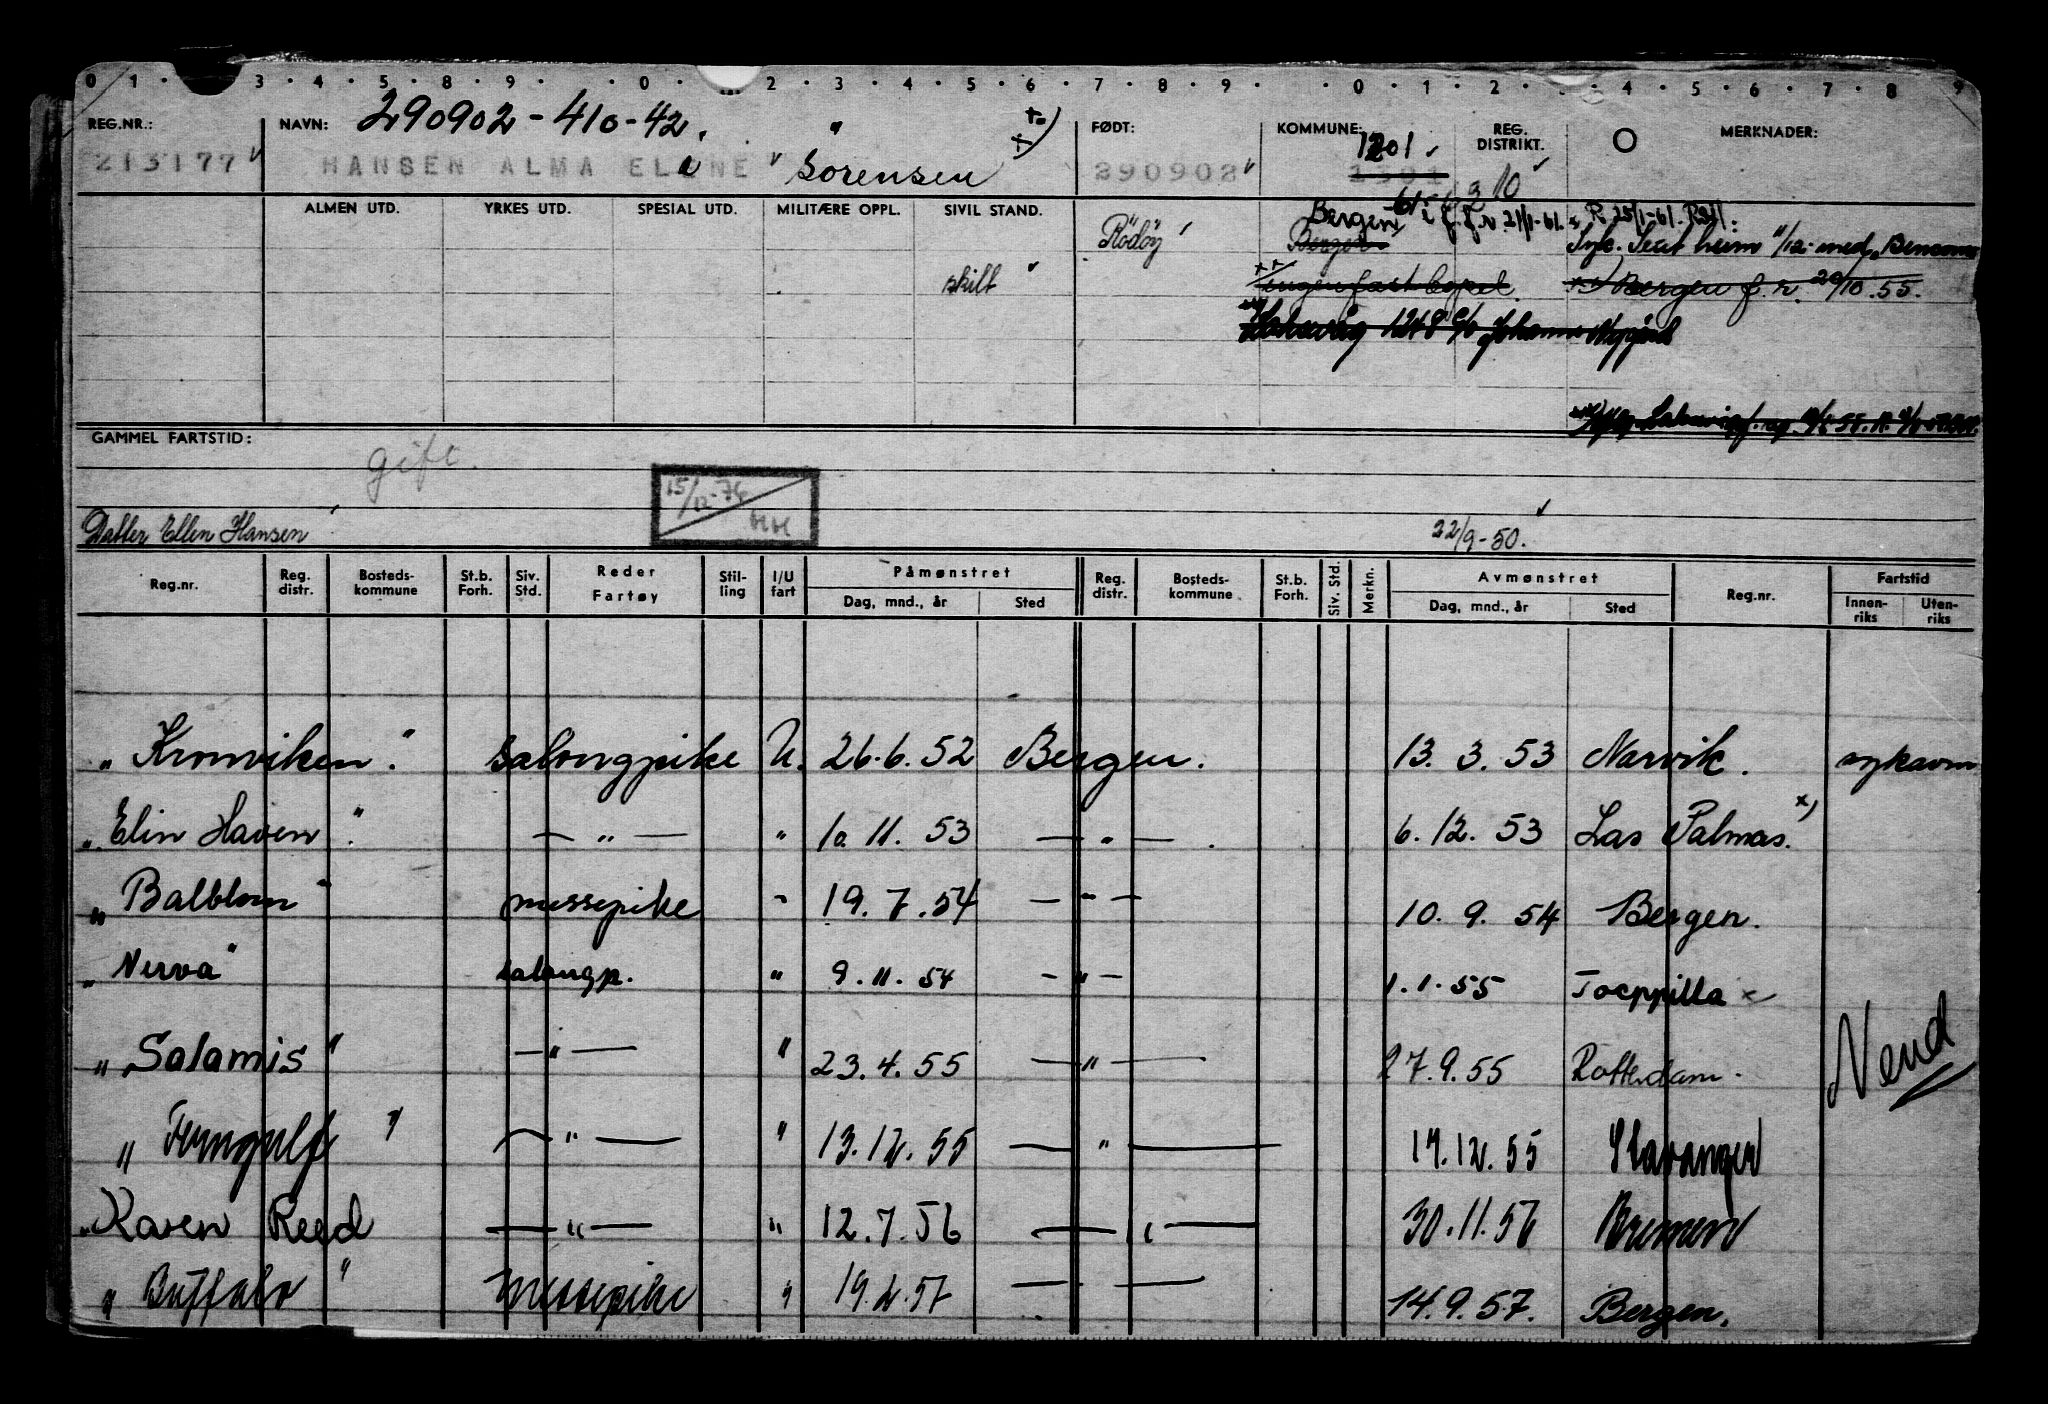 0 1 3 4 5 8 9 0 2 3 4 5 6 7 8 9 0 1 2 4 5 6 7 8 9
REG.NR.: NAVN: 290902-410-42. FØDT: KOMMUNE: 1201 REG. DISTRIKT. MERKNADER:
213177 HANSEN ALMA ELINE Sorensen xx) 290902 1301 10
ALMEN UTD. YRKES UTD. SPESIAL UTD. MILITÆRE OPPL. SIVIL STAND.
Rödöy Bergen f.r. 21/1-61. R. 25/1-61.
Bergen Syk. Sent heim 11/12 med
skilt Ingen fast bopel. xx) Bergen f.r. 20/10.55.
1248 c/o Johanne
GAMMEL FARTSTID:
gift.
15/12-76 HH
Datter Ellen Hansen 22/9-50.
Reg.nr. Reg. distr. Bosteds-kommune St.b. Forh. Siv. Std. Reder Fartøy Stil-ling I/U fart Påmønstret Dag, mnd., år Sted Reg. distr. Bosteds-kommune St.b. Forh. Siv. Std. Merkn. Avmønstret Dag, mnd., år Sted Reg.nr. Fartstid Innen-riks Uten-riks
"Kronviken". salongpike U. 26.6.52 Bergen. 13.3.53 Narvik. sykavm
"Elin Haven". — " — " 10.11.53 — " — . 6.12.53 Las Palmas. x)
"Balblom" messepike - 19.7.54 — " — 10.9.54 Bergen.
"Nerva" salongp. " 9.11.54 — " — 1.1.55 Tocppilla x
"Salamis" — " — " 23.4.55 — " — 27.9.55 Rotterdam.
Vend
"Ferngulf" — " — " 13.12.55 — " — 17.12.55 Stavanger
"Karen Reed — " — " 12.7.56 — " — 30.11.56 Bremen
"Buffalo" messepike " 19.2.57 — — 14.9.57. Bergen.